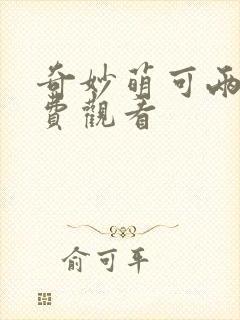 奇妙萌可兩
費觀看
俞可平